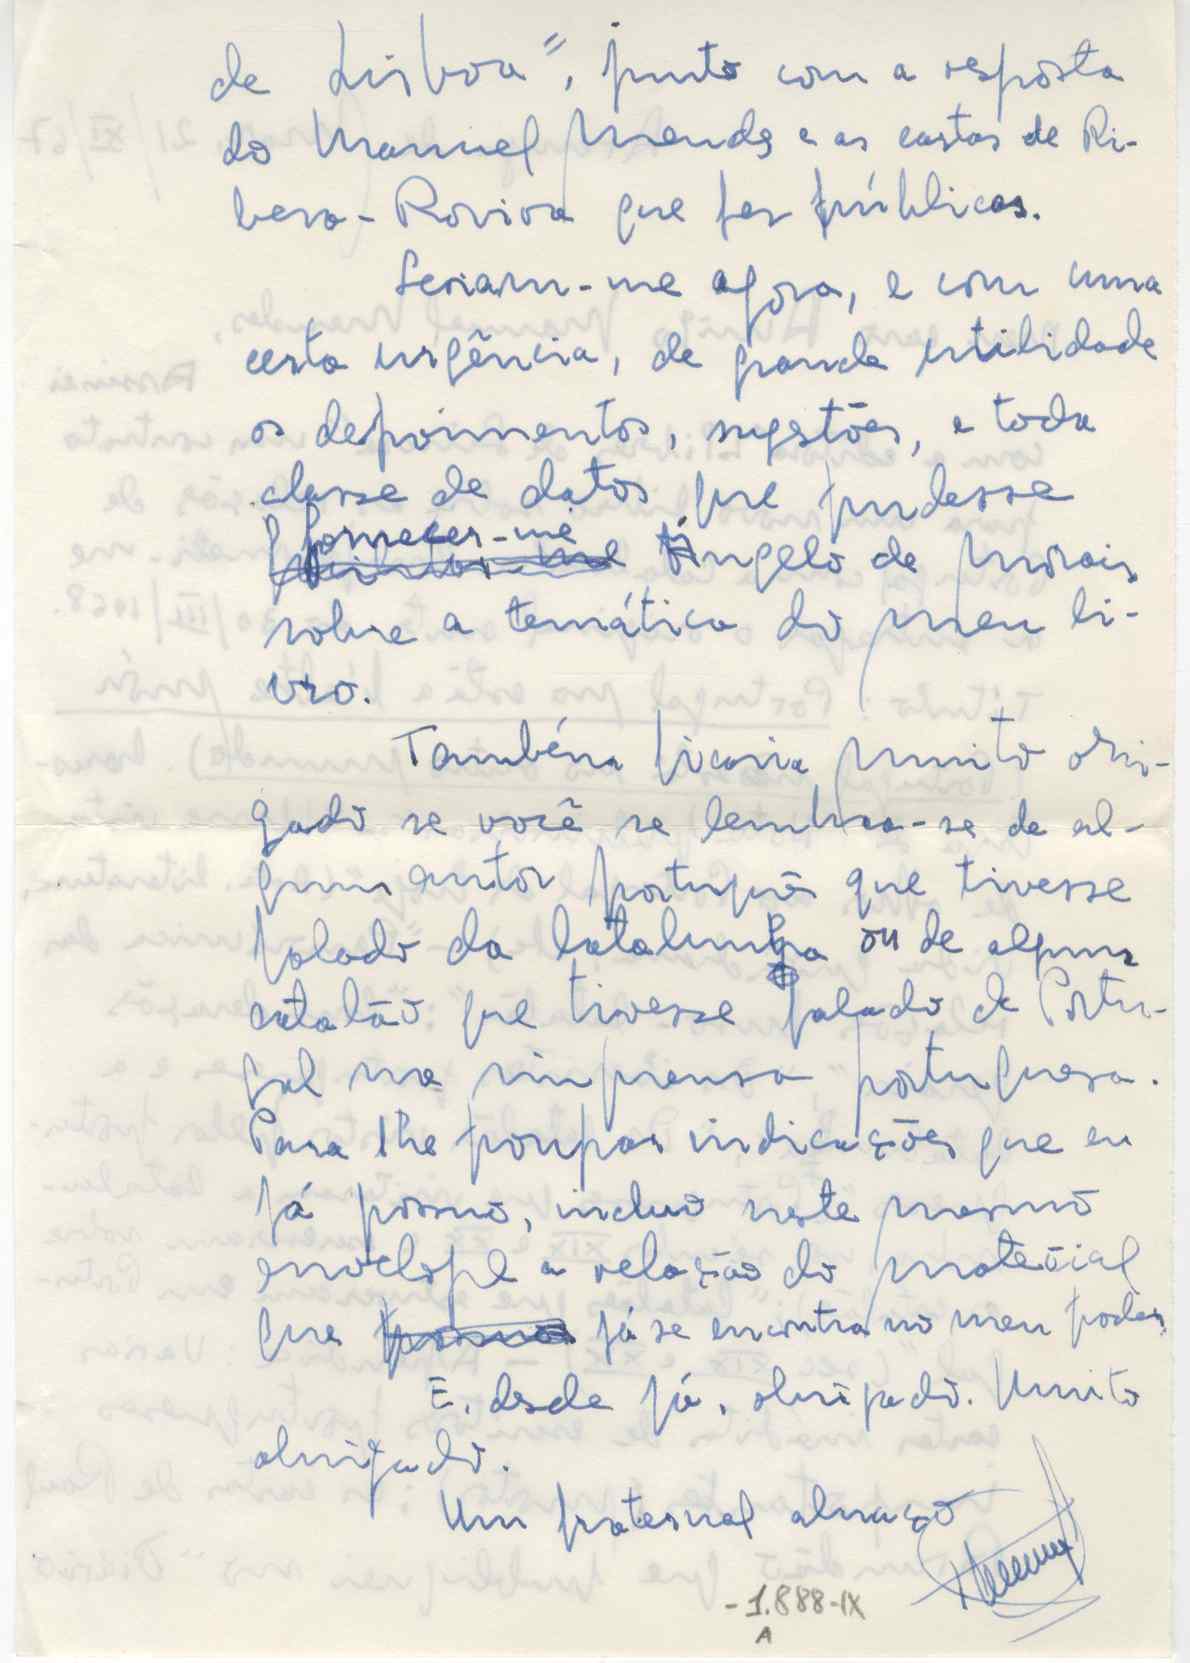 de Lisboa", junto com a resposta
do Manuel Mendes e as cartas de Ri-
bera-Rovira que fez públicas.
Seriam-me agora, e com uma
certa urgência, de grande utilidade
os depoimentos, sugestões, e toda
classe de datos que pudesse
fornecer-me Ângelo de Morais
sobre a temática do meu li-
vro.
Também ficaria muito obri-
gado se você se lembra-se de al-
gum autor português que tivesse
falado da Catalunha ou de algum
catalão que tivesse falado de Portu-
gal na imprensa portuguesa.
Para lhe poupar indicações que eu
já possuo, incluo neste mesmo
envelope a relação do material
que já se encontra no meu poder.
E, desde já, obrigado. Muito
obrigado.
Um fraternal abraço
-1.888-IX
A